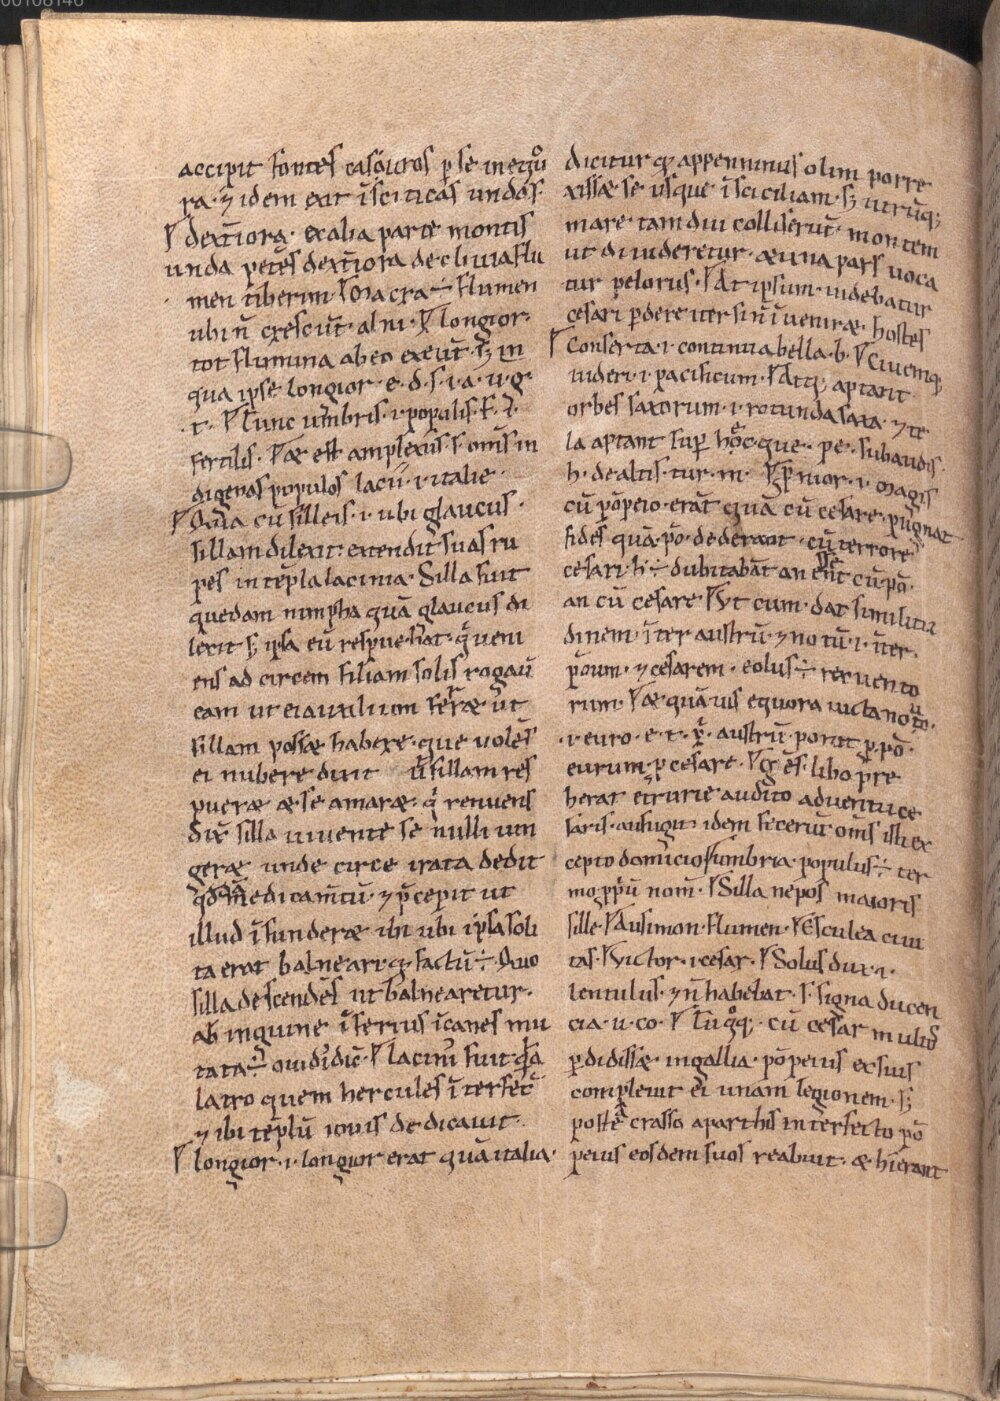 accipit fontes casouros p̱ se inequo
ra· ⁊ idem exit ĩ sciticas undas
dext̄iora· ex alia parte montis
unda petēs dext̄iora decliuia flu
men tiberim· Macra ÷ flumen
ubi ñ crescūt· alni· longior·
tot flumina ab eo exeūt· s; in
qua ipse longior· e· d· s· i· a· u· g·
t· Tunc umbris· i· populis· f· i·
fertilis· æ est amplexus· s· om̄s in
digenas populos lacii· i· italie·
Q̄da cū silleis· i· ubi glaucus·
sillam dilexit· extendit suas ru
pes in tēpla lacinia· Silla fuit
quedam nimpha quā glaucus di
lexit s; ipsa eū respuebat· q̄ ueni
ens ad circem filiam solis rogauī
eam ut ei auxilium ferræ ut
sillam possæ habere· que uolēs
ei nubere dixit ū sillam res
pueræ æ se amaræ· q̄ renuens
dix̄ silla uiuente se nulli uin
geræ unde circe irata dedit
q̄dā medicam̄tū· ⁊ p̄cepit ut
illud ĩfunderæ ibi ubi ipsa soli
ta erat balneari· q̄ factū ÷ Quo
silla descendēs ut balnearetur·
ab inguine ĩferius ĩ canes mu
tata ÷ ouidi' dic̄· lacini' fuit q̄dā
latro quem hercules ĩterfec̄
⁊ ibi tēplū iouis dedicauit
longior· i· longior erat quā italia·
dicitur q; appenninus olim porre
xissæ se usque ĩ siciliam· s; utrūq;
mare· tam diu colliserūt· montem
ut diuideretur· æ una pars uoca
tur pelorus· At ipsum· uidebatur
cesari p̱dere iter si ñ ĩueniræ· hostes
Conserta· i· continua bella· b· Ciuemq;
uideri· i· pacificum· Atq; aptant
orbes saxorum· i· rotunda saxa· ⁊ te
la aptant sup̱ hoc· que· pe· subaudis·
h· de altis· tur· m· P̄nior· i· magis
cū pōpeio· erāt quā cū cesare· pugnat
fides quā· pō· dederant· cū terrore
cesari· h ÷ dubitabāt an eēnt cū pō·
an cū cesare Vt cum· dat similitu
dinem· ĩter austrū· ⁊ notū· i· ĩter·
pōium· ⁊ cesarem· eolus ÷ rex uento
rum· æ quāuis equora uicta noto·
· i· euro· e· t· x̄· austrū· ponit p̱ pō·
eurum· p̱ cesare· G ēs· libo p̄re
herat etrurie audito aduentu ce
saris· aufugit· idem fecerūt om̄s illi ex
cepto domicio· umbria· populus ÷ ter
mo· ppū nom̄· Silla nepos maioris
sille· Ausimon· flumen· Esculea ciui
tas· Victor· i cesar· Solus dux· i·
lentulus· ⁊ ñ habebat· s· signa ducen
cia· u· co· Tu q̊q; cū cesar multos
p̱didissæ· in gallia· pōpeius ex suis
compleuit ei unam legionem· s;
postea crasso a parthis interfecto pō
peius eosdem suos reabuit· æ hi erant